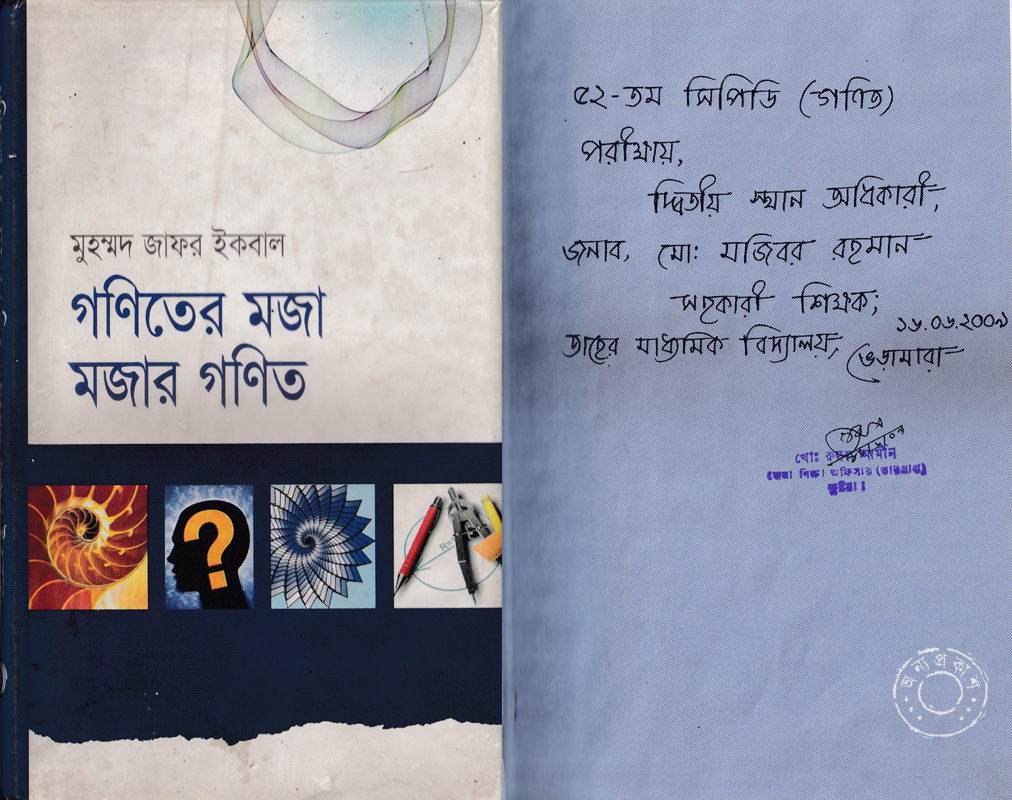 মুহম্মদ জাফর ইকবাল
গণিতের মজা
মজার গণিত
?
৫২-তম সিপিডি (গণিত)
পরীক্ষায়,
দ্বিতীয় স্থান অধিকারী,
জনাব, মো: মজিবর রহমান
সহকারী শিক্ষক;
তাহের মাধ্যমিক বিদ্যালয়, ভেড়ামারা
১৬.০৬.২০০৯
মোঃ রুহুল আমীন
জেলা শিক্ষা অফিসার (ভারপ্রাপ্ত)
কুষ্টিয়া।
অন্যপ্রকাশ